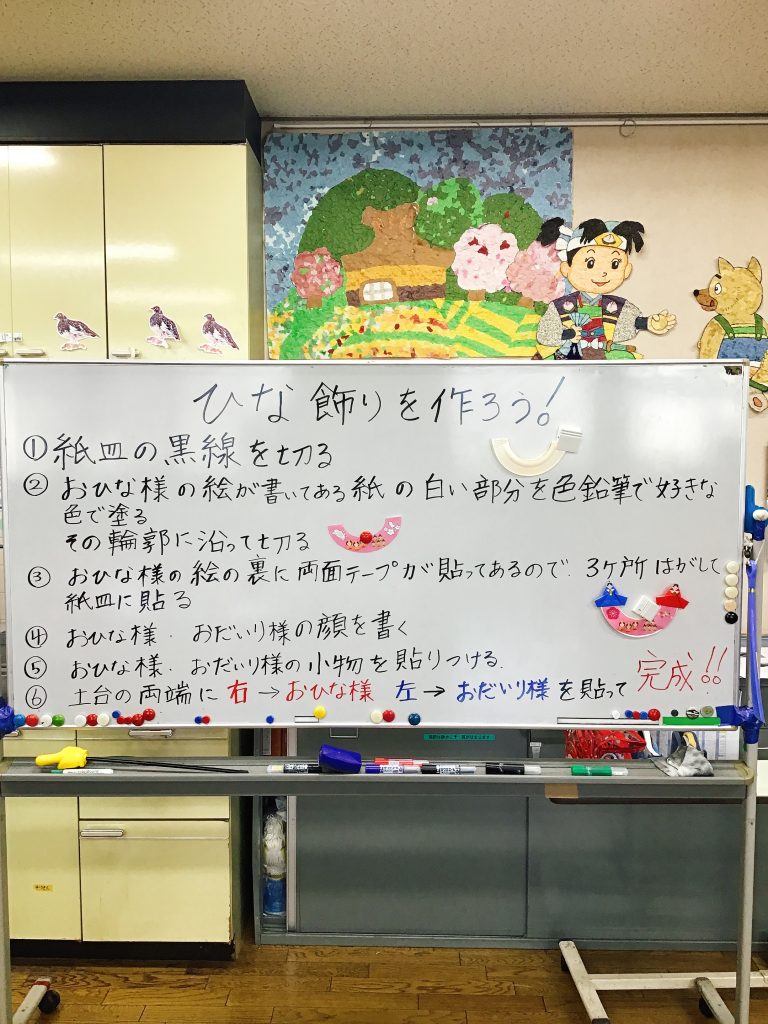 ひな飾りを作ろう!
①紙皿の黒線を切る
②おひな様の絵が書いてある紙の白い部分を色鉛筆で好きな
色で塗る
その輪郭に沿って切る
③おひな様の絵の裏に両面テープが貼ってあるので、3ヶ所はがして
紙皿に貼る
④おひな様、おだいり様の顔を書く
⑤おひな様、おだいり様の小物を貼りつける.
⑥土台の両端に右→おひな様 左→おだいり様を貼って 完成!!